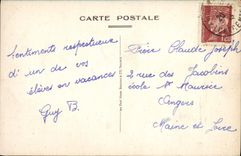 CARTE POSTALE
Sentiments respectueux
d'un de vos
élèves en vacances
Guy B.
Frère Claude Joseph
2 rue des Jacobins
école St Maurice
Angers
Maine et Loire